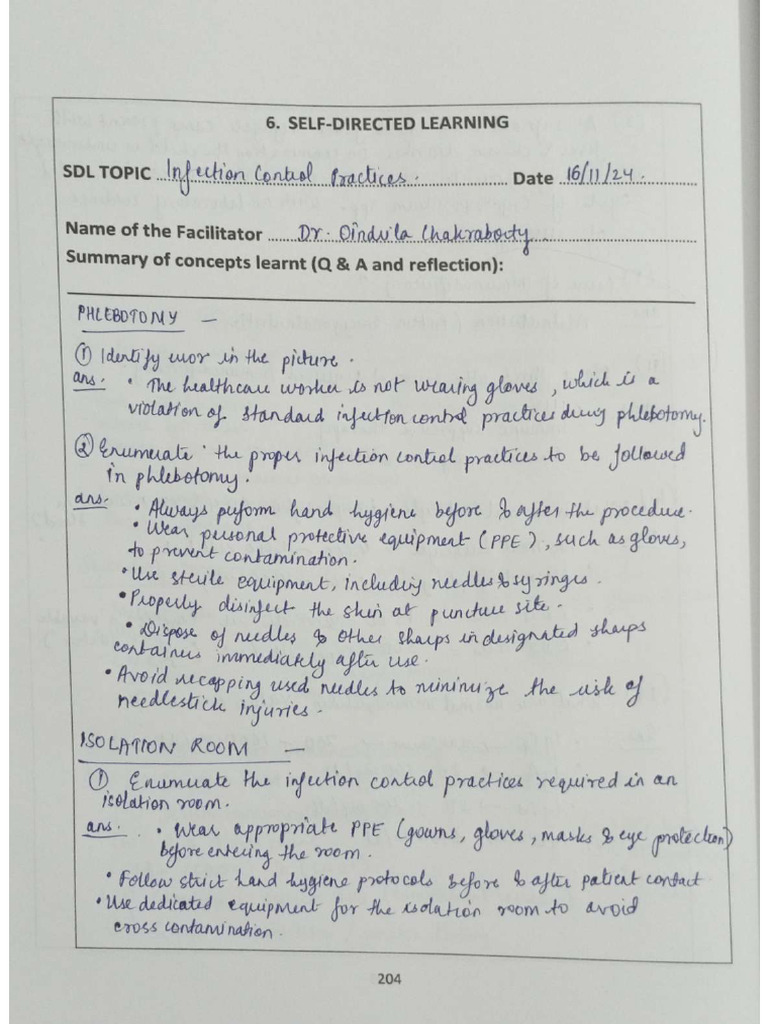 6. SELF-DIRECTED LEARNING
SDL TOPIC Infection Control Practices. Date 16/11/24.
Name of the Facilitator Dr. Oindrila Chakraborty
Summary of concepts learnt (Q & A and reflection):
PHLEBOTOMY —
① Identify error in the picture.
ans. • The healthcare worker is not wearing gloves, which is a
violation of standard infection control practices during phlebotomy.
② Enumerate the proper infection control practices to be followed
in phlebotomy.
ans. • Always perform hand hygiene before & after the procedure.
• Wear personal protective equipment (PPE), such as gloves,
to prevent contamination.
• Use sterile equipment, including needles & syringes.
• Properly disinfect the skin at puncture site.
• Dispose of needles & other sharps in designated sharps
containers immediately after use.
• Avoid recapping used needles to minimize the risk of
needlestick injuries.
ISOLATION ROOM —
① Enumerate the infection control practices required in an
isolation room.
ans. • Wear appropriate PPE (gowns, gloves, masks & eye protection)
before entering the room.
• Follow strict hand hygiene protocols before & after patient contact
• Use dedicated equipment for the isolation room to avoid
cross contamination.
204